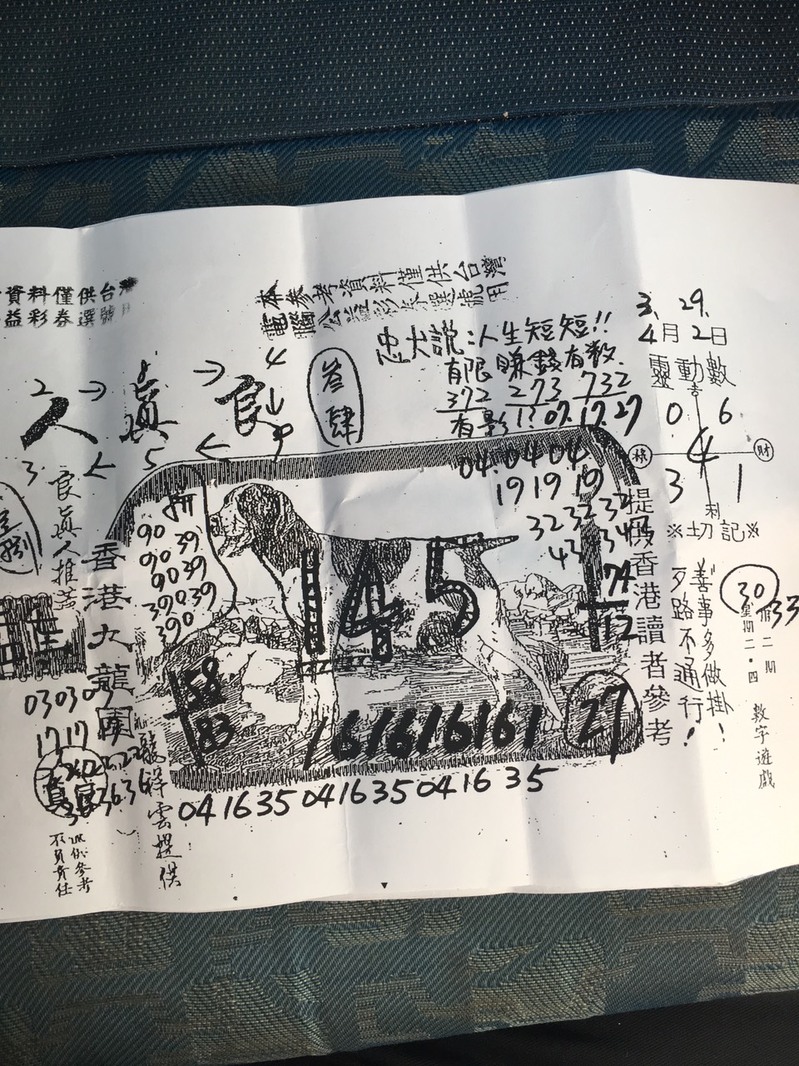 資料僅供台灣
益彩券選號用
本參考資料僅供台灣
電腦公益彩券選號用
3, 29.
4月2日
靈動數
吉
0 6
4
3 1
利
財
※切記※
善事多做掛!
歹路不通行!
30
33
星期二.四
數字遊戲
忠犬說:人生短短!!
有限 賺錢有数.
372 273 732
有影!? 07.17.27
04.04 04
19 19 19
32 32 32
43 34
74
12
叁肆
2 → → 4
人真良
3 ← 5 ← 9
良眞人推薦
香港九龍團
提供香港讀者參考
90
90 39
90 39
390 39
390
145
58
83
161616161
27
041635 041635 0416 35
03 03 0
17 17
龍祥雲提供
僅供參考
不負責任